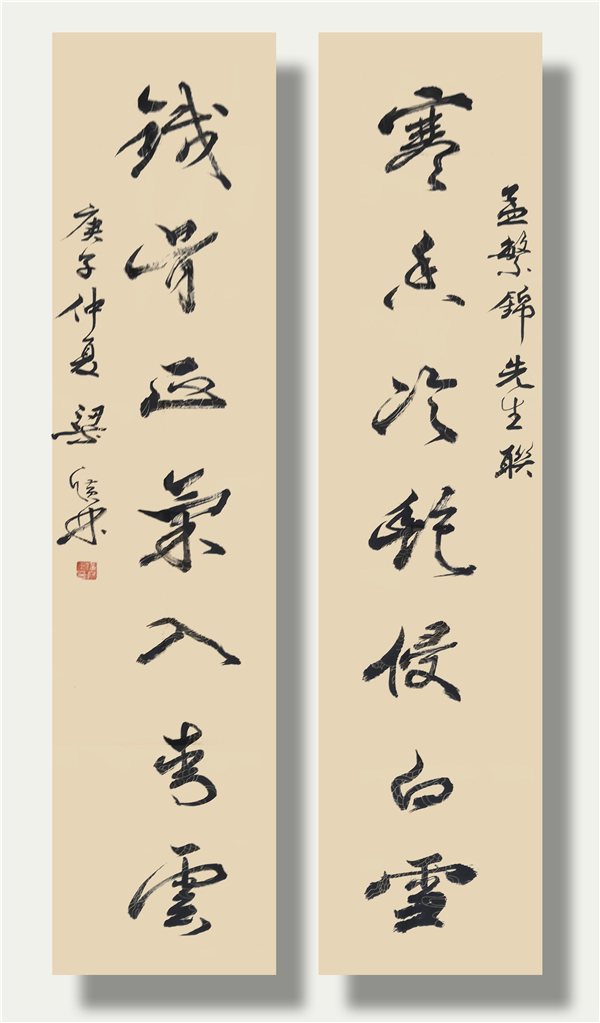 孟繁錦先生聯
寒香冷艳侵白雪
鐵骨正氣入青雲
庚子仲夏 梁